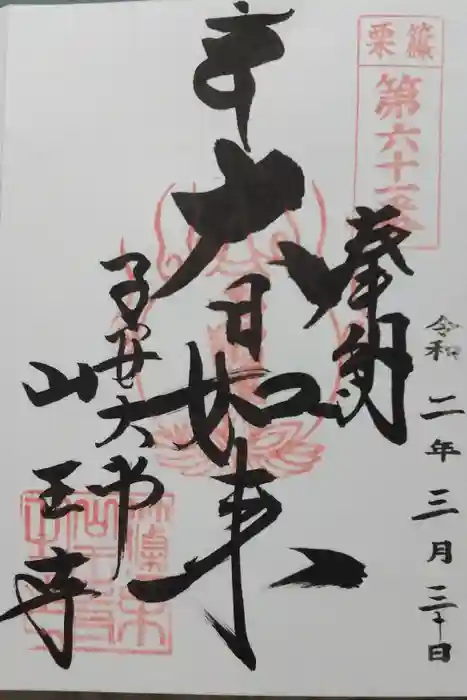 篠栗
第六十一番
奉納
大日如来
子安大师
山王寺
令和二年三月三十日